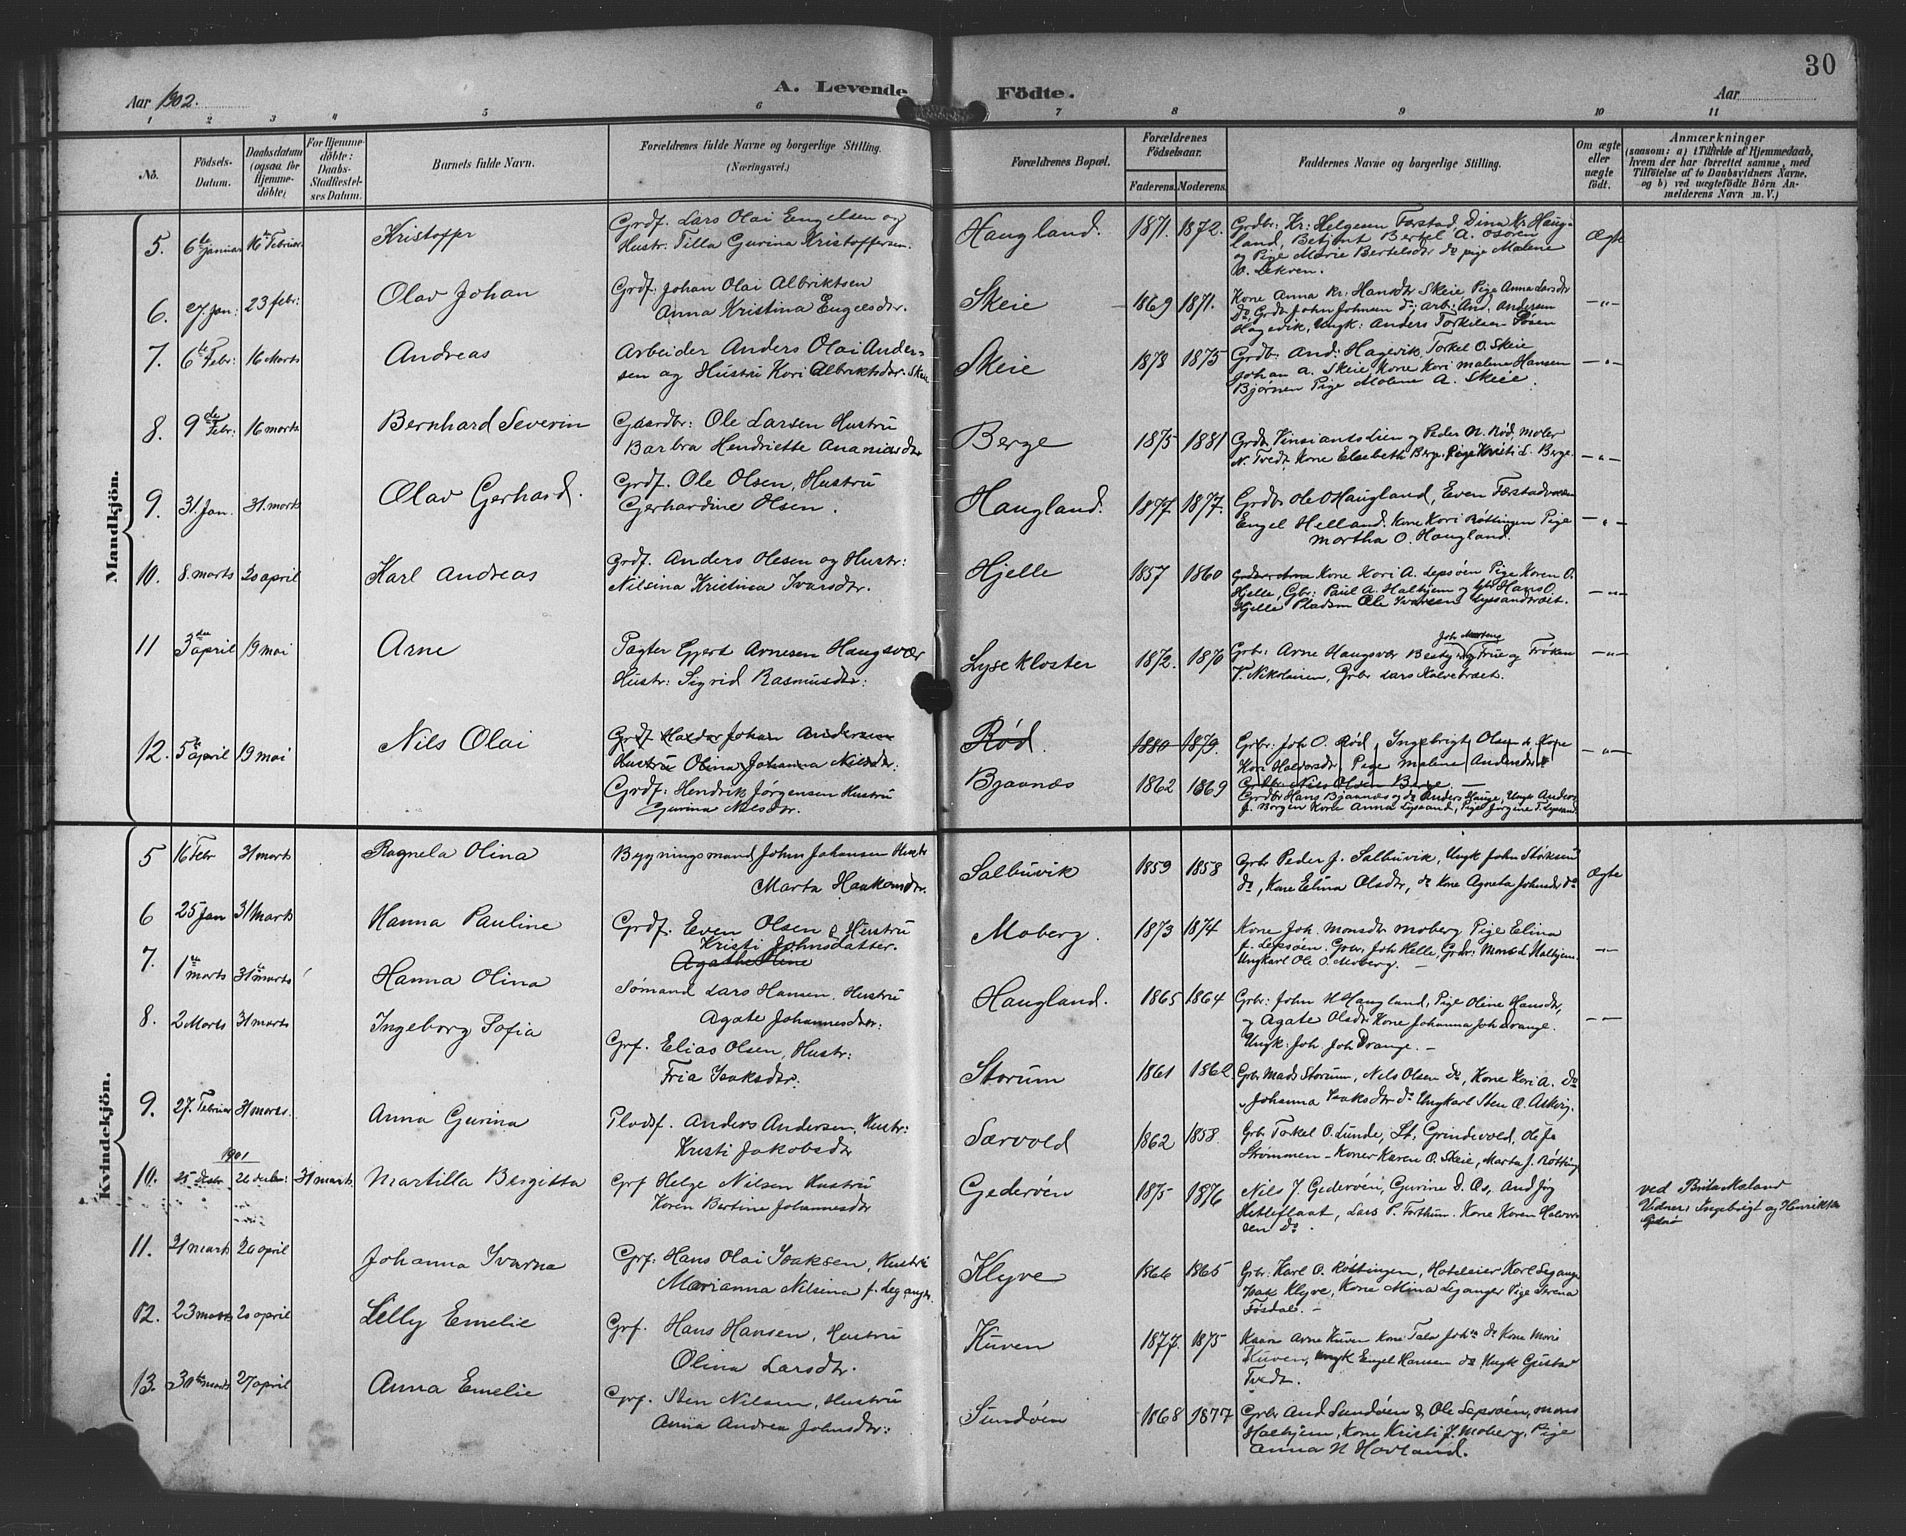 30
Aar 1902.
A. Levende Fødte.
Aar
1 2 3 4 5 6 7 8 9 10 11
No.
Fødsels-Datum.
Daabsdatum (ogsaa for Hjemme-døbte)
For Hjemme-døbte: Daabs-Stadfæstelses Datum.
Barnets fulde Navn.
Forældrenes fulde Navne og borgerlige Stilling. (Næringsvei.)
Forældrenes Bopæl.
Forældrenes Fødselsaar.
Faderens. Moderens.
Faddernes Navne og borgerlige Stilling.
Om ægte eller uægte født.
Anmærkninger
(saasom: a) i Tilfælde af Hjemmedaab, hvem der har forrettet samme, med Tilføielse af to Daabsvidners Navne. og b) ved uægtefødte Børn Anmelderens Navn m. V.)
Mandkjøn.
5. 6te Januar 16de Februar Kristoffer
Grdf. Lars Olai Engelsen og
Hustr: Tilla Gurina Kristoffersen.
Haugland. 1871. 1872.
Grdbr: Kr: Helgesen Førstad, Dina Kr. Haug-
land, Betjent Bertel A. Osøren
og Pige Marie Bertelsdtr do pige Malene
O. Lekven.
Ægte
6. 27. Jan: 23 febr: Olav Johan
Grdf: Johan Olai Albriktsen
Anna Kristina Engelsdtr.
Skeie 1869 1871.
Kone Anna Kr: Hansdtr Skeie Pige Anna Larsdtr
Do, Grdbr John Johnsen do; arb: And. Andersen
Hagevik, Ungk: Anders Torkilsen Osøen
— " —
7. 6te Febr: 16 Marts Andreas
Arbeider Anders Olai Ander-
sen og Hustru Kari Albriktsdtr. Skeie
Skeie 1873 1875
Grdb: And: Hagevik, Torkel O. Skeie
Johan A. Skeie Kone Kari Malene Hansen
Bjørnen Pige Malene A. Skeie.
— " —
8. 9de Febr: 16 marts Bernhard Severin
Gaardbr: Ole Larsen Hustru
Barbra Henriette Ananiasdtr
Berge 1875 1881
N. Tvedt Kone Elsebeth Berge. Pige Kristi L. Berge.
— " —
9. 31. Jan. 31. marts Olav Gerhard.
Grdf. Ole Olsen, Hustru
Gerhardine Olsen.
Haugland. 1877. 1877.
Grdbr Ole O Haugland, Even
Engel Helland. Kone Kari Røttingen Pige
Martha O. Haugland.
— " —
10. 8. marts 20 april Karl Andreas
Grdf. Anders Olesen og Hustr:
Nilsina Kristina Ivarsdtr.
Hjelle 1857 1860
Kone Kari A. Lepsøen Pige Karen O.
Hjelle, Gbr: Paul A. Halhjem og Hans O.
Hjelle Pladsm Ole Ivarsen Lyssandræet.
— " —
11 3die april 19 mai Arne
Pagter Ejert Arnesen Haugsvær
Hustr: Sigrid Rasmusdtr:
Lysekloster 1872. 1870
Grbr: Arne Haugsvær Frue og Frøken
T. Nikolaisen, Grbr Lars Kalvetræet.
— " —
12. 5te april 19 mai Nils Olai
Grdf. Johan Andersen
Hustru Olina Johanna Nilsdtr.
Grdf: Hendrik Jørgensen Hustru
Gurina Nilsdtr.
Rød. 1880 1879.
Bjaanæs 1862 1869
Grbr: Joh O. Rød, Ingebrigt Olsen do Kone
Kari Halvorsdtr, Pige Malene Andersdtr
Grdbr: Nils Olsen Berge.
Grdbr Hans Bjaanæs og do Anders Hauge, Ungk Anders
J. Borgen Kone Anna Lyssand, Pige Jørgine T. Lyssand.
— " —
Kvindekjøn.
5 16 Febr 31 marts Ragnela Olina
Bygningsmand John Johansen Hustr
Marta Haakonsdtr.
Salbuvik 1859 1858
Grbr Peder J. Salbuvik, Ungk John Størksen
do, Kone Elina Olsdtr, do Kone Agneta Johnsdtr do
Ægte
6 25 Jan 31 Marts Hanna Pauline
Grdf. Even Olsen & Hustru
Kristi Johnsdatter.
Moberg. 1873 1874
Kone Joh. Monsdtr Moberg Pige Elina
J. Lepsøen. Grbr. Joh Helle, Grbr: Mons L Halhjem
Ungkarl Ole O. Moberg. —
—
7. 1te marts 31te marts Hanna Olina
Sømand Lars Hansen. Hustru
Agate Johannesdtr:
Haugland. 1865 1864
Grbr: John H Haugland, Pige Oline Hansdtr,
og Agate Olsdtr Kone Johanna Joh Drange.
Ungk: Joh. Joh Drange. —
— —
8. 2 Marts 31 marts Ingeborg Sofia
Grf. Elias Olsen, Hustr:
Fria Isaksdtr.
Storum 1861 1862
Grbr Mads Storum, Nils Olsen do, Kone Kari A. do
Johanna Isaksdtr do Ungkarl Sten O. Askvig.
9. 27. Februar 31 marts. Anna Gurina
Pladsf. Anders Andersen, Hustr:
Kristi Jakobsdtr
Særvold 1862 1858.
Grbr Torkel O. Lunde, St. Grindevold, Ole Js
Strømmen — Koner Karen O. Skeie, Marta J. Røtting
1901
10. 25 Decbr 26 decbr: 31 marts. Martilla Bergitta
Grf Helge Nilsen Hustru
Karen Bertine Johannesdtr
Gederøen 1875 1876
Nils J. Gederøen, Gurine D. Os, And Jøg
Hetleflaat, Lars P. Forthun. Kone Karen Halvor-
sen do.
ved Brita Mæland
Vidner: Ingebrigt og Henrikke
Gederø
11. 21 marts 20 april Johanna Ivarna
Grf: Hans Olai Isaksen, Hustru
Marianna Nilsina f. Leganger.
Klyve 1866 1865
Grbr: Karl O. Røttingen, Hoteleier Karl Legange
Isak Klyve, Kone Mina Leganger Pige Serena
Fosdal. —
12. 23 marts 20 april Lilly Emelie
Grf. Hans Hansen, Hustru
Olina Larsdtr.
Kuven 1877. 1875
Arne Kuven Kone Tala Joh do Kone Marie
Kuven, Ungk Engel Hansen do Ungk Gustav
Tvedt.
13. 30te marts 27 april Anna Emelie
Grf. Sten Nilsen, Hustru
Anna Andrea Johnsdtr:
Sundøen 1868 1877
Grbr And Sundøen & Ole Lepsøen, Mons
Halhjem, Kone Kristi J. Moberg, Pige
Anna N Hovland.